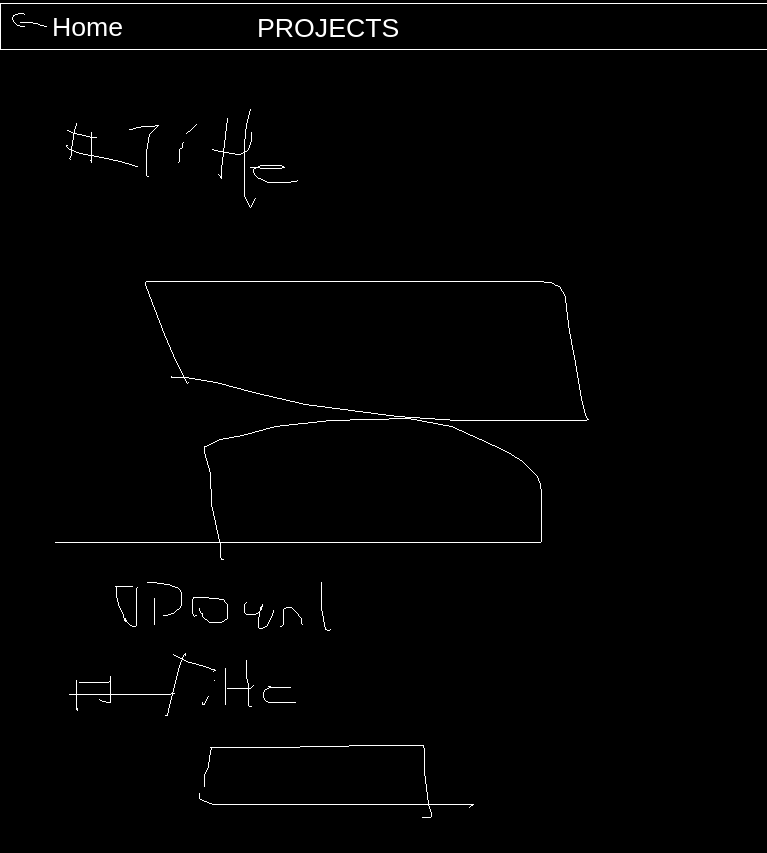 Home PROJECTS
# Title
Downl
# Title